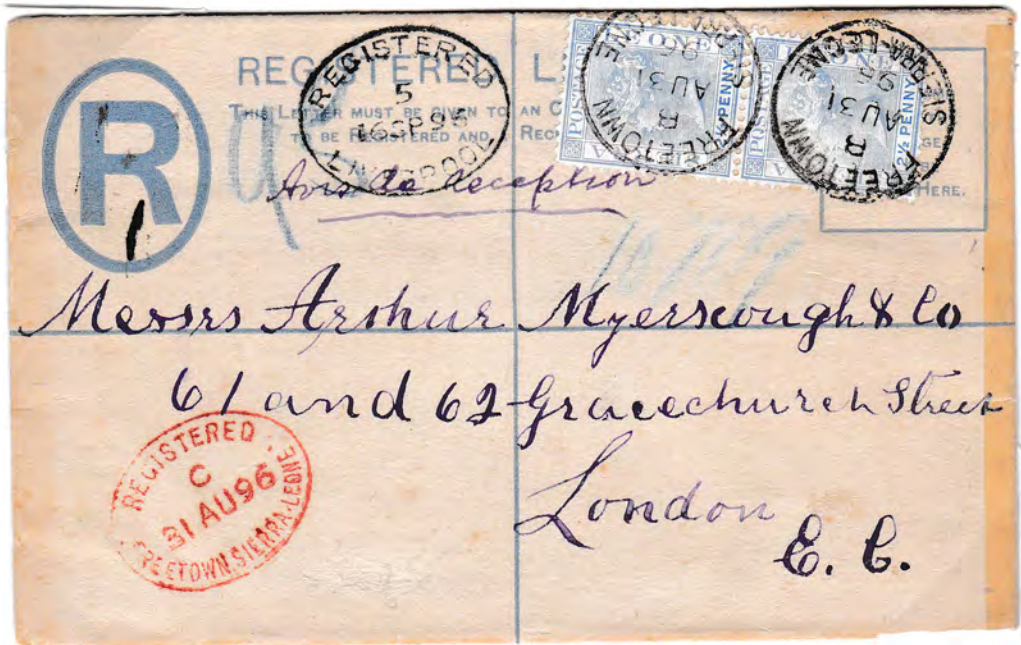 REGISTERED L
THIS LETTER MUST BE GIVEN TO AN
TO BE REGISTERED AND
HERE.
R
REGISTERED
5
16 SP 96
LIVERPOOL
POSTAGE
ONE
2½ PENNY
FREETOWN
B
AU 31
96
SIERRA LEONE
POSTAGE
ONE
2½ PENNY
FREETOWN
B
AU 31
96
SIERRA-LEONE
Avis de reception
Messrs Arthur Myerscough & Co
61 and 62 Gracechurch Street
London
E. C.
REGISTERED
C
31 AU 96
FREETOWN.SIERRA-LEONE.